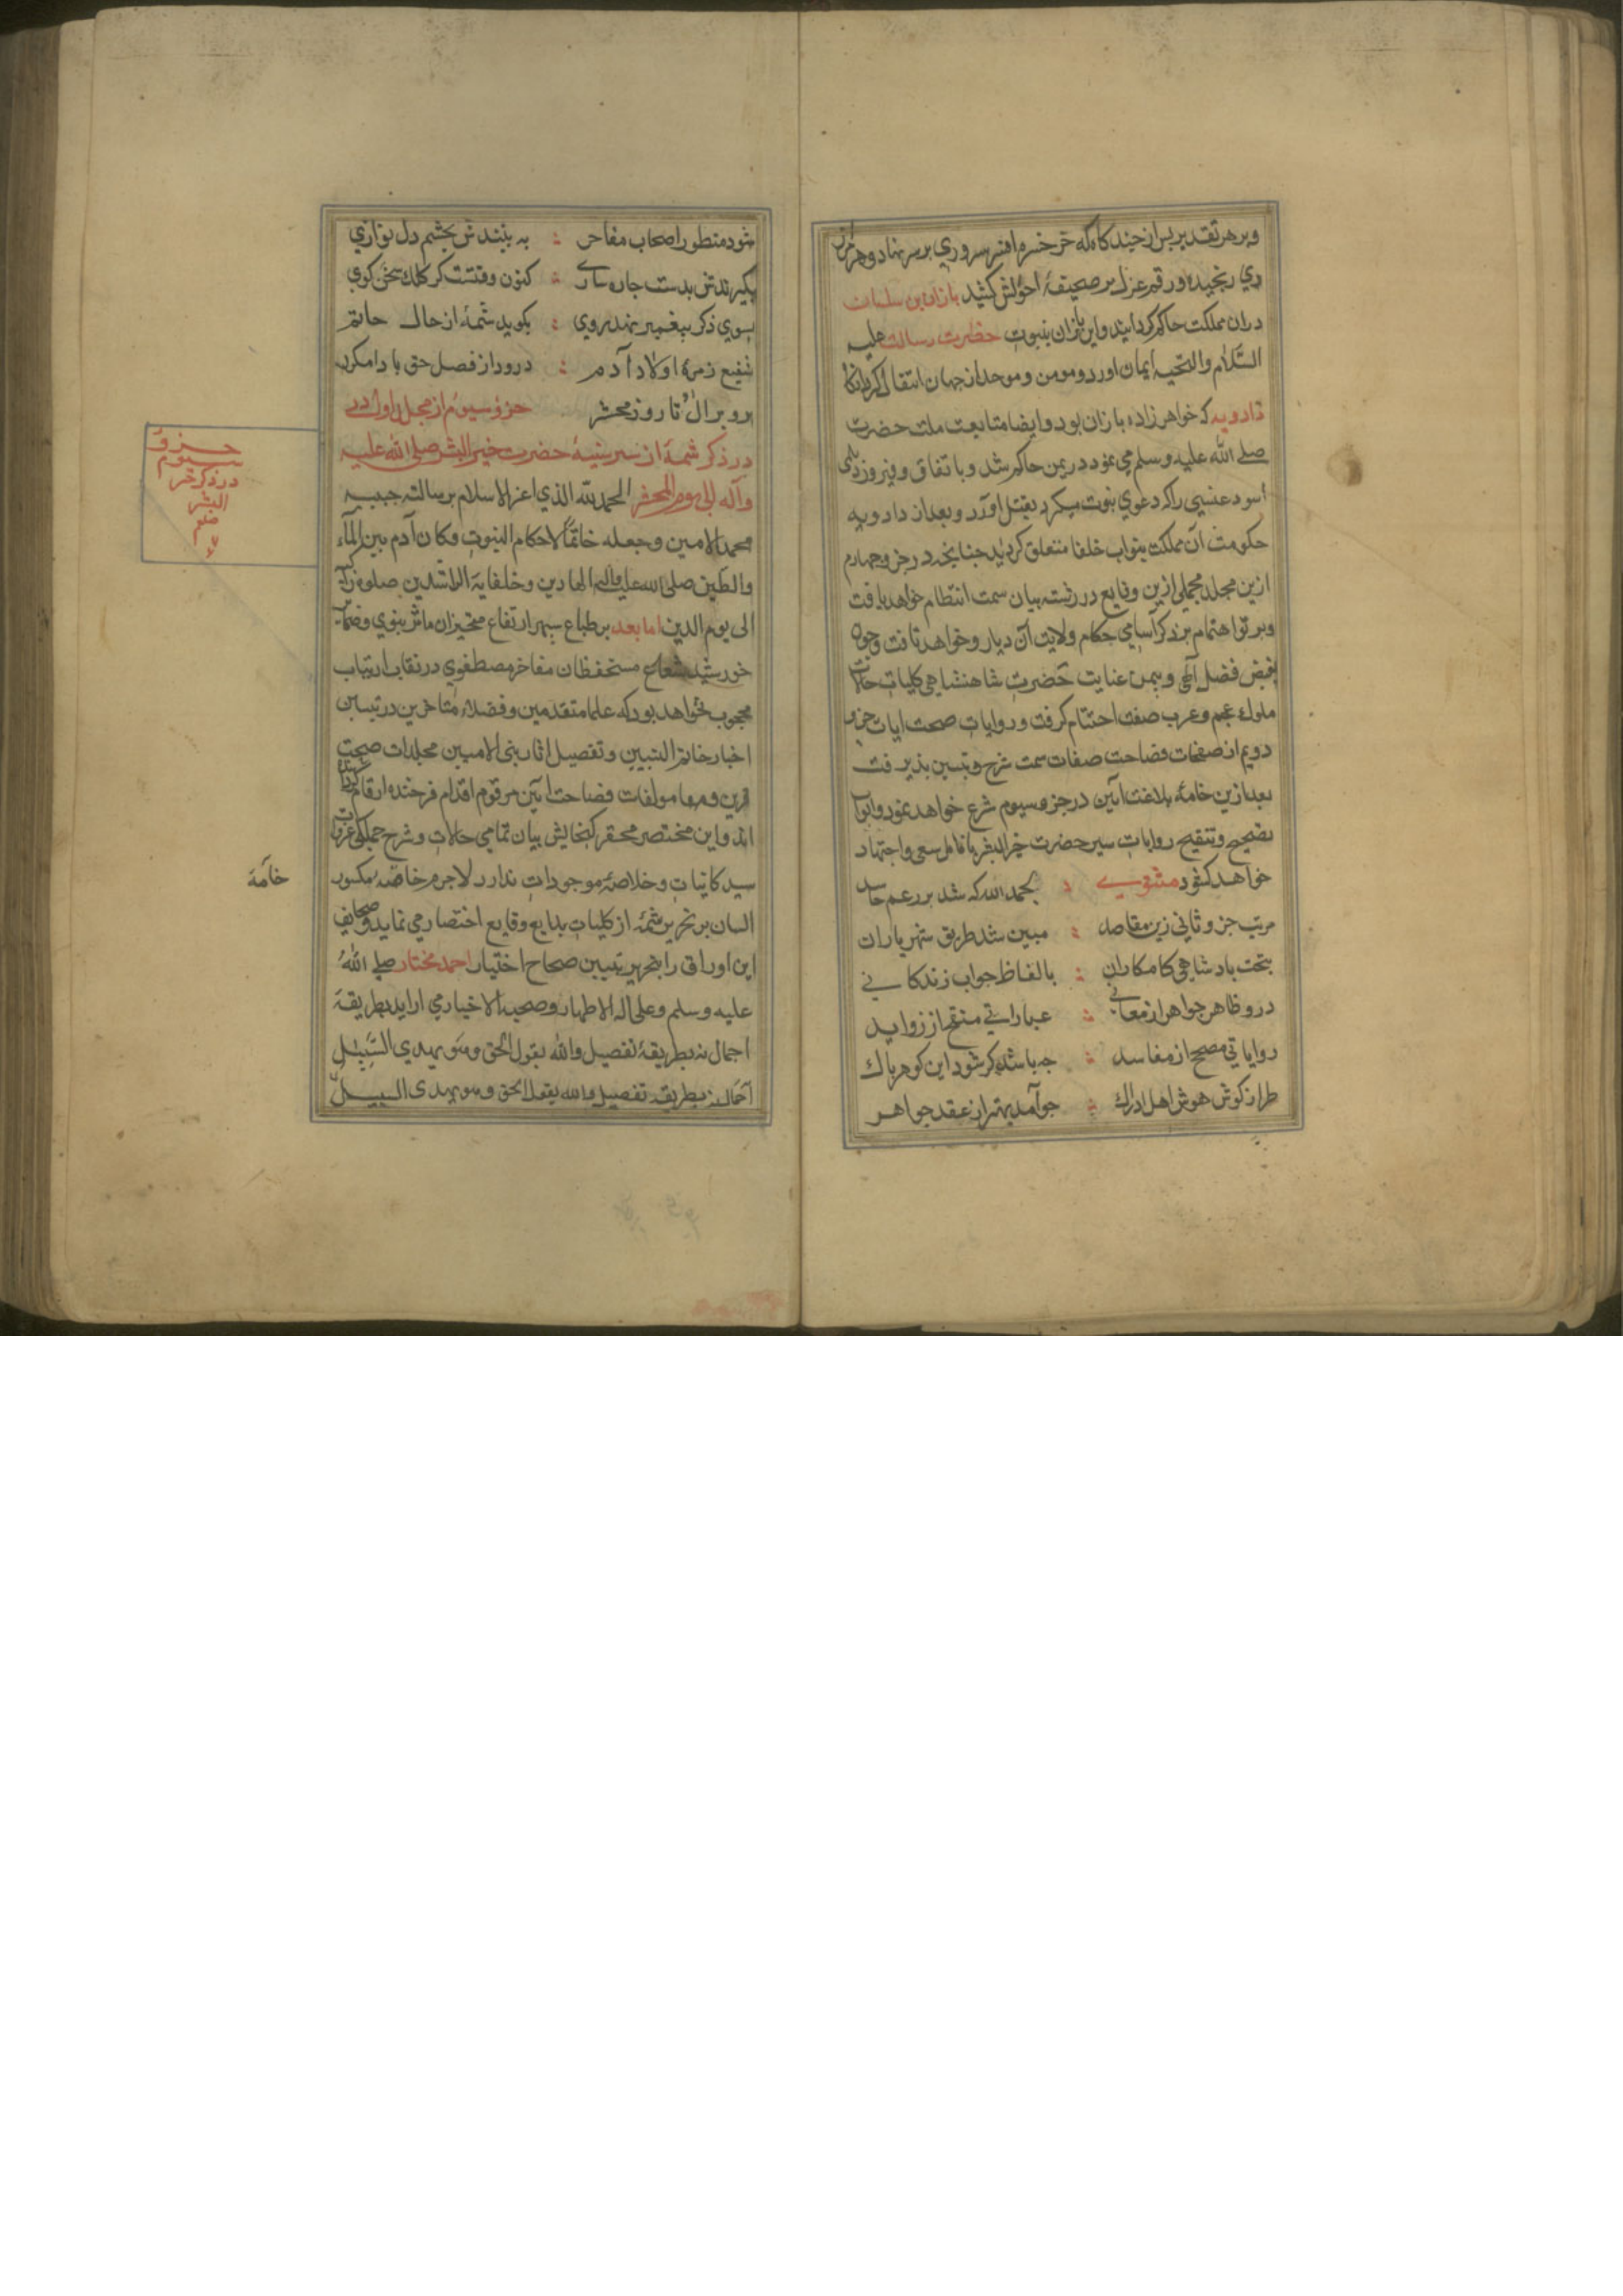 وبر هر تقدیر پس از چند کاه که خر خسره افسر سروري بر سر نهاد و هرمز از
وي رنجیده ورقم عزل بر صحیفهٔ احوالش کشید باذان بن ساسان
دران مملکت حاکم کردانید واین باذان بنبوت حضرت رسالت علیه
السّلام والتحیه ایمان اورد و مومن وموحد از جهان انتقال کرد انکاه
دادویه که خواهر زاده باذان بود وایضا متابعت ملت حضرت
صلے الله علیه وسلم می نمود در یمن حاکم شد وباتفاق وفیروز دیلمی
اسود عنسیي را که دعوي نبوت میکرد بقتل اورد وبعد از دادویه
حکومت آن مملکت بنواب خلفا متعلق کردید چنانچه در جز و چهارم
ازین مجلد مجملی ازین وقایع در رشته بیان سمت انتظام خواهد یافت
وپرتو اهتمام بر ذکر آسامي حکام ولایت آن دیار و خواهد تافت وچون
بفیض فضل الٓهی وبیمن عنایت حضرت شاهنشاهی کلیات حالات
ملوك عجم وعرب صفت اختتام کرفت وروایات صحت ایات جزو
دویم از صفحات فصاحت صفات سمت شرح وتبیین پذیرفت
بعد ازین خامهٔ بلاغت آیین در جز و سیوم شرع خواهد نمود وابواب
تصحیح وتنقیح روایات سیر حضرت خیر البشر بانامل سعی واجتهاد
خواهد کشود مثنوے بحمد الله که شد بر رغم حاسد
مرتب جز و ثاني زین مقاصد مبین شد طریق شهریاران
بتخت بادشاهي کامکاران بالفاظ جواب زندکانے
درو ظاهر جواهر از معانے عباراتے منقح از زواید
روایاتي مصحح از مفاسد چه باشد کر شود این کوهر پاك
طراز کوش هوش اهل ادراك چو آمد بهتر از عقد جواهر
شود منظور اصحاب مفاخر به بینندش بچشم دل نوازي
بکیرندش بدست چاره سازے کنون وقتست کر کلك سخن کوي
بسوي ذکر پیغمبر نهد روي بکوید شمهٔ از حال خاتم
شفیع زمرهٔ اولاد آدم درود از فضل حق بادا مکرر
برو بر ال او تا روز محشر جزو سیوم از مجلد اول در
در ذکر شمهٔ از سیر سنیهٔ حضرت خیر البشر صلی الله علیه
وآله الی یوم المحشر الحمد لله الذي اعز الاسلام برسالته حبیبه
محمد الامین وجعله خاتمًا لاحکام النبوت وکان آدم بین الماء
والطین صلی الله علیه وآله الهادین وخلفایه الراشدین صلوة زاکیه
الی یوم الدین اما بعد بر طباع سپهر ارتفاع متحیزان ماثر نبوي وضمایر
خورشید شعاع مستحفظان مفاخر مصطفوي در نقاب ارتیاب
محجوب نخواهد بود که علما متقدمین وفضلاء متاخرین در تبیین
اخبار خاتم النبیین وتفصیل اثار نبی الامیین مجلدات صحت
قرین ومولفات فصاحت آیین مرقوم اقدام فرخنده ارقام کردانیده
اند واین مختصر محقر کنجایش بیان تمامي حالات وشرح جملکی غزوات
سید کاینات وخلاصهٔ موجودات ندارد لاجرم خامه مکسور
اللسان بر تحریر شمهٔ از کلیات بدایع وقایع اختصار می نماید وصحایف
این اوراق را بتحریر تبیین صحاح اختیار احمد مختار صلے اللهُ
علیه وسلم وعلی اله الاطهار وصحبه الاخیار می ارایدبطریقهٔ
اجمال نه بطریقهٔ تفصیل والله یقول الحق وهو یهدي السَّبیل
اجمال نه بطریقه تفصیل والله یقول الحق وهو یهدی السبیل
جزو
سیوم
در ذکر خیر
البشر
صلعم
خامَه